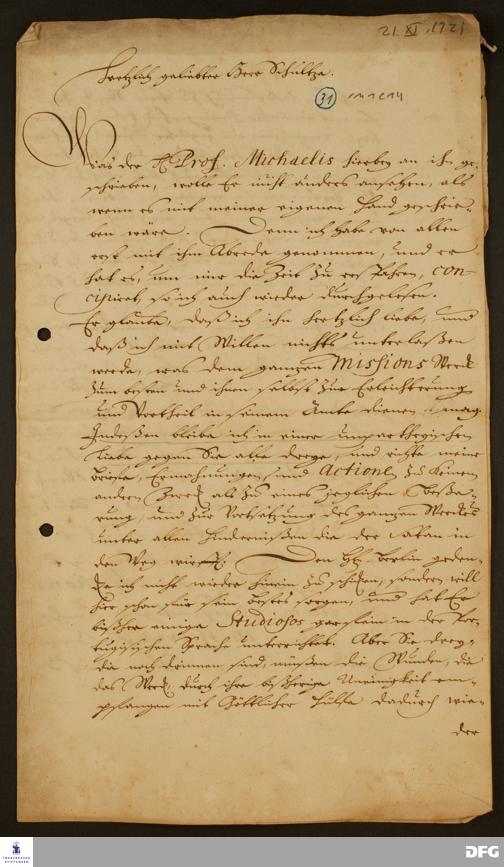 21. XI. 1721
Hertzlich geliebter Herr Schultze.
31
Was der H. Prof. Michaelis hierbey an ihn ge-
schrieben, wolle Er nicht anders ansehen, als
wenn es mit meiner eigenen Hand geschrie-
ben wäre. Denn ich habe von allen
erst mit ihm Abrede genommen, und er
hat es, um mir die Zeit zu ersparen, con-
cipiret, so ich auch wieder durchgelesen.
Er glaube, daß ich ihn hertzlich liebe, und
daß ich mit Willen nichts unterlaßen
werde, was dem gantzen Missions Werck
zum besten und ihm selbst zur Erleichterung
und Vortheil in seinem Amte dienen mag.
Indeßen bleibe ich in einer unpartheyischen
Liebe gegen Sie alle drey, und richte meine
Briefe, Ermahnungen und Actiones zu keinem
andern Zweck als zu eines jeglichen Beße-
rung, und zur Fortsetzung des gantzen Werckes
unter allen Hindernißen die der Satan in
den Weg wirfft. Den H. Berlin geden-
cke ich nicht wieder hinein zu schicken, sondern will
hier schon für sein Bestes sorgen, und hat Er
bißher einige Studiosos in der Por-
tugisischen Sprache unterrichtet. Aber Sie drey,
die noch drinnen sind, müßen die Wunden, die
das Werck durch ihre bißherige Uneinigkeit em-
pfangen mit Göttlicher Hülfe dadurch wie-
der
FRANCKESCHE
STIFTUNGEN
DFG